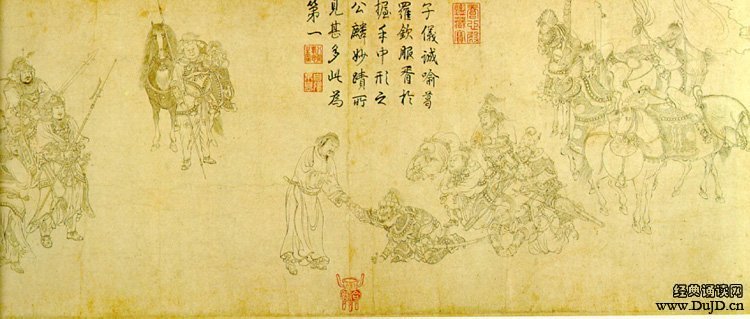 子儀誠喻葛
羅欽服胥於
握手中形之
公麟妙蹟所
見甚多此為
第一
经典诵读网
www.DujD.cn